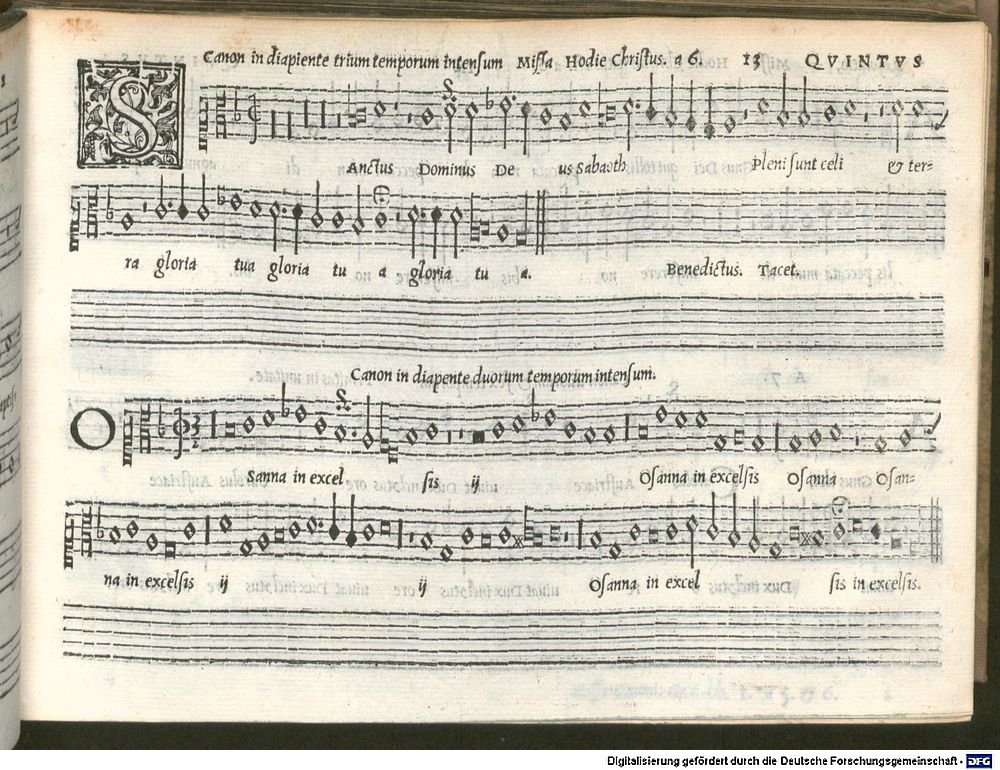 Canon in diapiente trium temporum intensum Missa Hodie Christus. a 6. 13 QVINTVS
S Anctus Dominus De us Sabaoth Pleni sunt celi & ter-
ra gloria tua gloria tu a gloria tu a. Benedictus. Tacet.
Canon in diapente duorum temporum intensum.
O Sanna in excel sis ij Osanna in excelsis Osanna Osan-
na in excelsis ij ij Osanna in excel sis in excelsis.
Digitalisierung gefördert durch die Deutsche Forschungsgemeinschaft - DFG